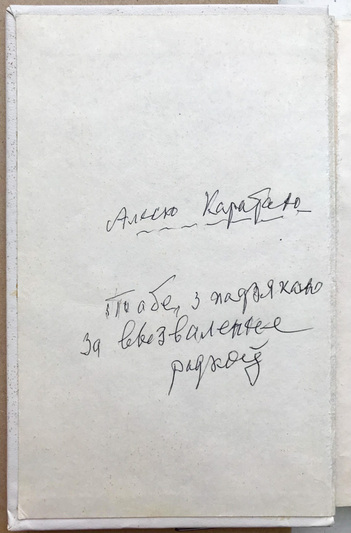 Алесю Карабаню
Табе, з падзякаю
за вызваленне
радкоў